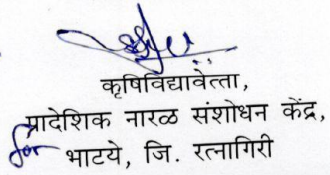 कृषिविद्यावेत्ता,
प्रादेशिक नारळ संशोधन केंद्र,
for भाटये, जि. रत्नागिरी